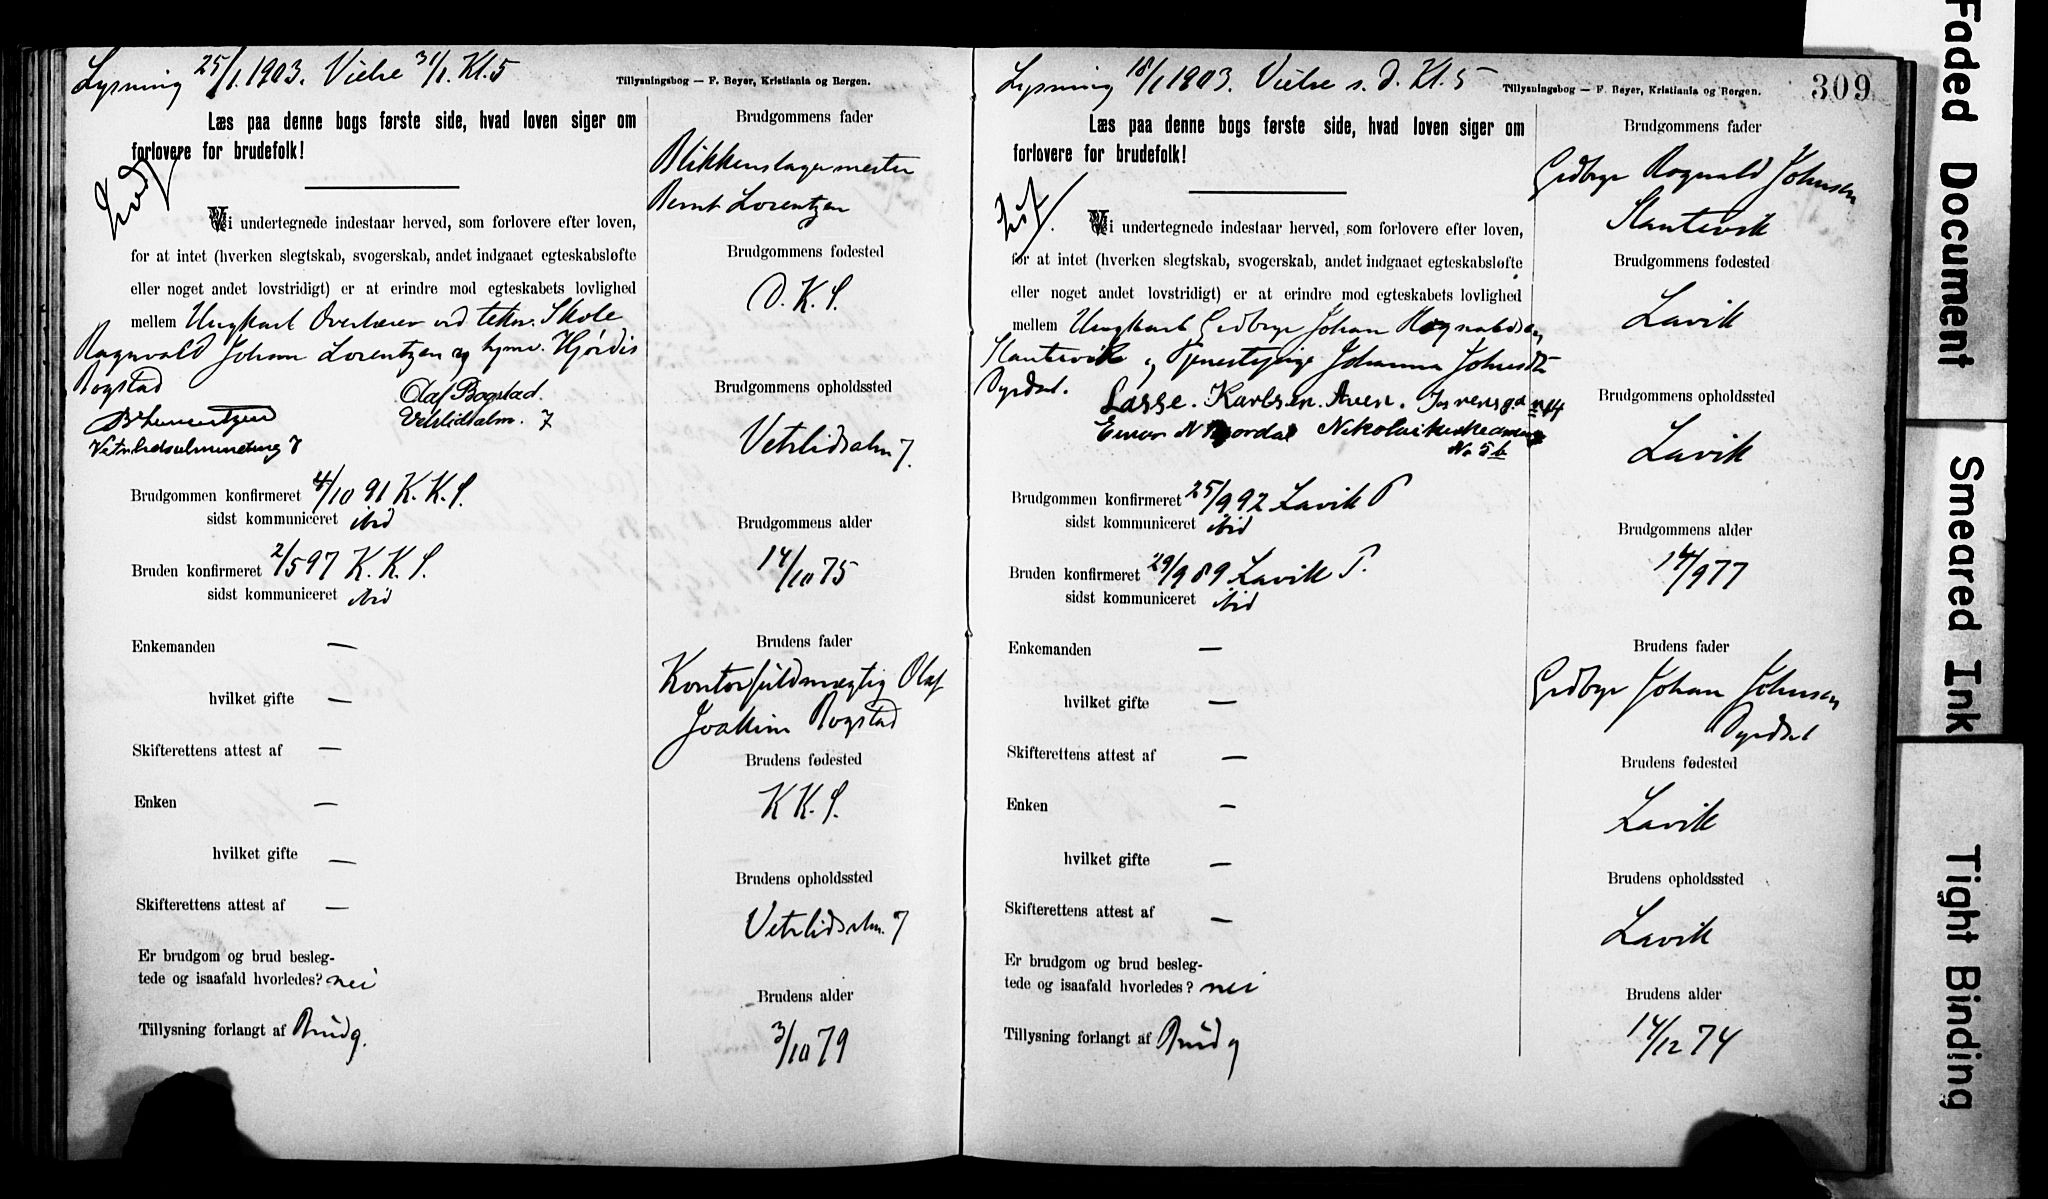 Lysning 25/1. 1903. Vielse 31/1. Kl. 5
Tillysningsbog — F. Beyer, Kristiania og Bergen.
Læs paa denne bogs første side, hvad loven siger om
forlovere for brudefolk!
Vi undertegnede indestaar herved, som forlovere efter loven,
for at intet (hverken slegtskab, svogerskab, andet indgaaet egteskabsløfte
eller noget andet lovstridigt) er at erindre mod egteskabets lovlighed
mellem Ungkarl Overlærer ved tekn. Skole
Ragnvald Johan Lorentzen og Hjørdis
Bogstad
Olaf Bogstad.
BLorentzen
Vetrlidsalm. 7
Vetrlidsalmending 7
Brudgommen konfirmeret 4/10 91 K. K. S.
sidst kommuniceret ibid
Bruden konfirmeret 2/5 97 K. K. S.
sidst kommuniceret ibid
Enkemanden —
hvilket gifte —
Skifterettens attest af —
Enken —
hvilket gifte —
Skifterettens attest af —
Er brudgom og brud besleg-
tede og isaafald hvorledes? nei
Tillysning forlangt af Brudg.
Brudgommens fader
Blikkenslagermester
Bernt Lorentzen
Brudgommens fødested
D. K. S.
Brudgommens opholdssted
Vetrlidsalm 7.
Brudgommens alder
14/10 75
Brudens fader
Kontorfuldmægtig Olaf
Joakim Bogstad
Brudens fødested
K K. S.
Brudens opholdssted
Vetrlidsalm. 7
Brudens alder
3/10 79
Lysning 18/1 1903. Vielse s. D. Kl. 5
Tillysningsbog — F. Beyer, Kristiania og Bergen.
309
Læs paa denne bogs første side, hvad loven siger om
forlovere for brudefolk!
Vi undertegnede indestaar herved, som forlovere efter loven,
for at intet (hverken slegtskab, svogerskab, andet indgaaet egteskabsløfte
eller noget andet lovstridigt) er at erindre mod egteskabets lovlighed
mellem Ungkarl Grdbr Johan Rognaldsen
Stantevik og Tjenestepige Johanna Johnsdtr
Dyrdal.
Lasse. Karlsen.
Einar N Nikolaikirkealmening
No 5 b
Brudgommen konfirmeret 25/9 92 Lavik P
sidst kommuniceret ibid
Bruden konfirmeret 29/9 89 Lavik P.
sidst kommuniceret ibid
Enkemanden —
hvilket gifte —
Skifterettens attest af —
Enken —
hvilket gifte —
Skifterettens attest af —
Er brudgom og brud besleg-
tede og isaafald hvorledes? nei
Tillysning forlangt af Brudg
Brudgommens fader
Grdbr Rognald Johnsen
Stantevik
Brudgommens fødested
Lavik
Brudgommens opholdssted
Lavik
Brudgommens alder
14/9 77
Brudens fader
Grdbr Johan Johnsen
Dyrdal
Brudens fødested
Lavik
Brudens opholdssted
Lavik
Brudens alder
14/12 74
Faded Document
Smeared Ink
Tight Binding